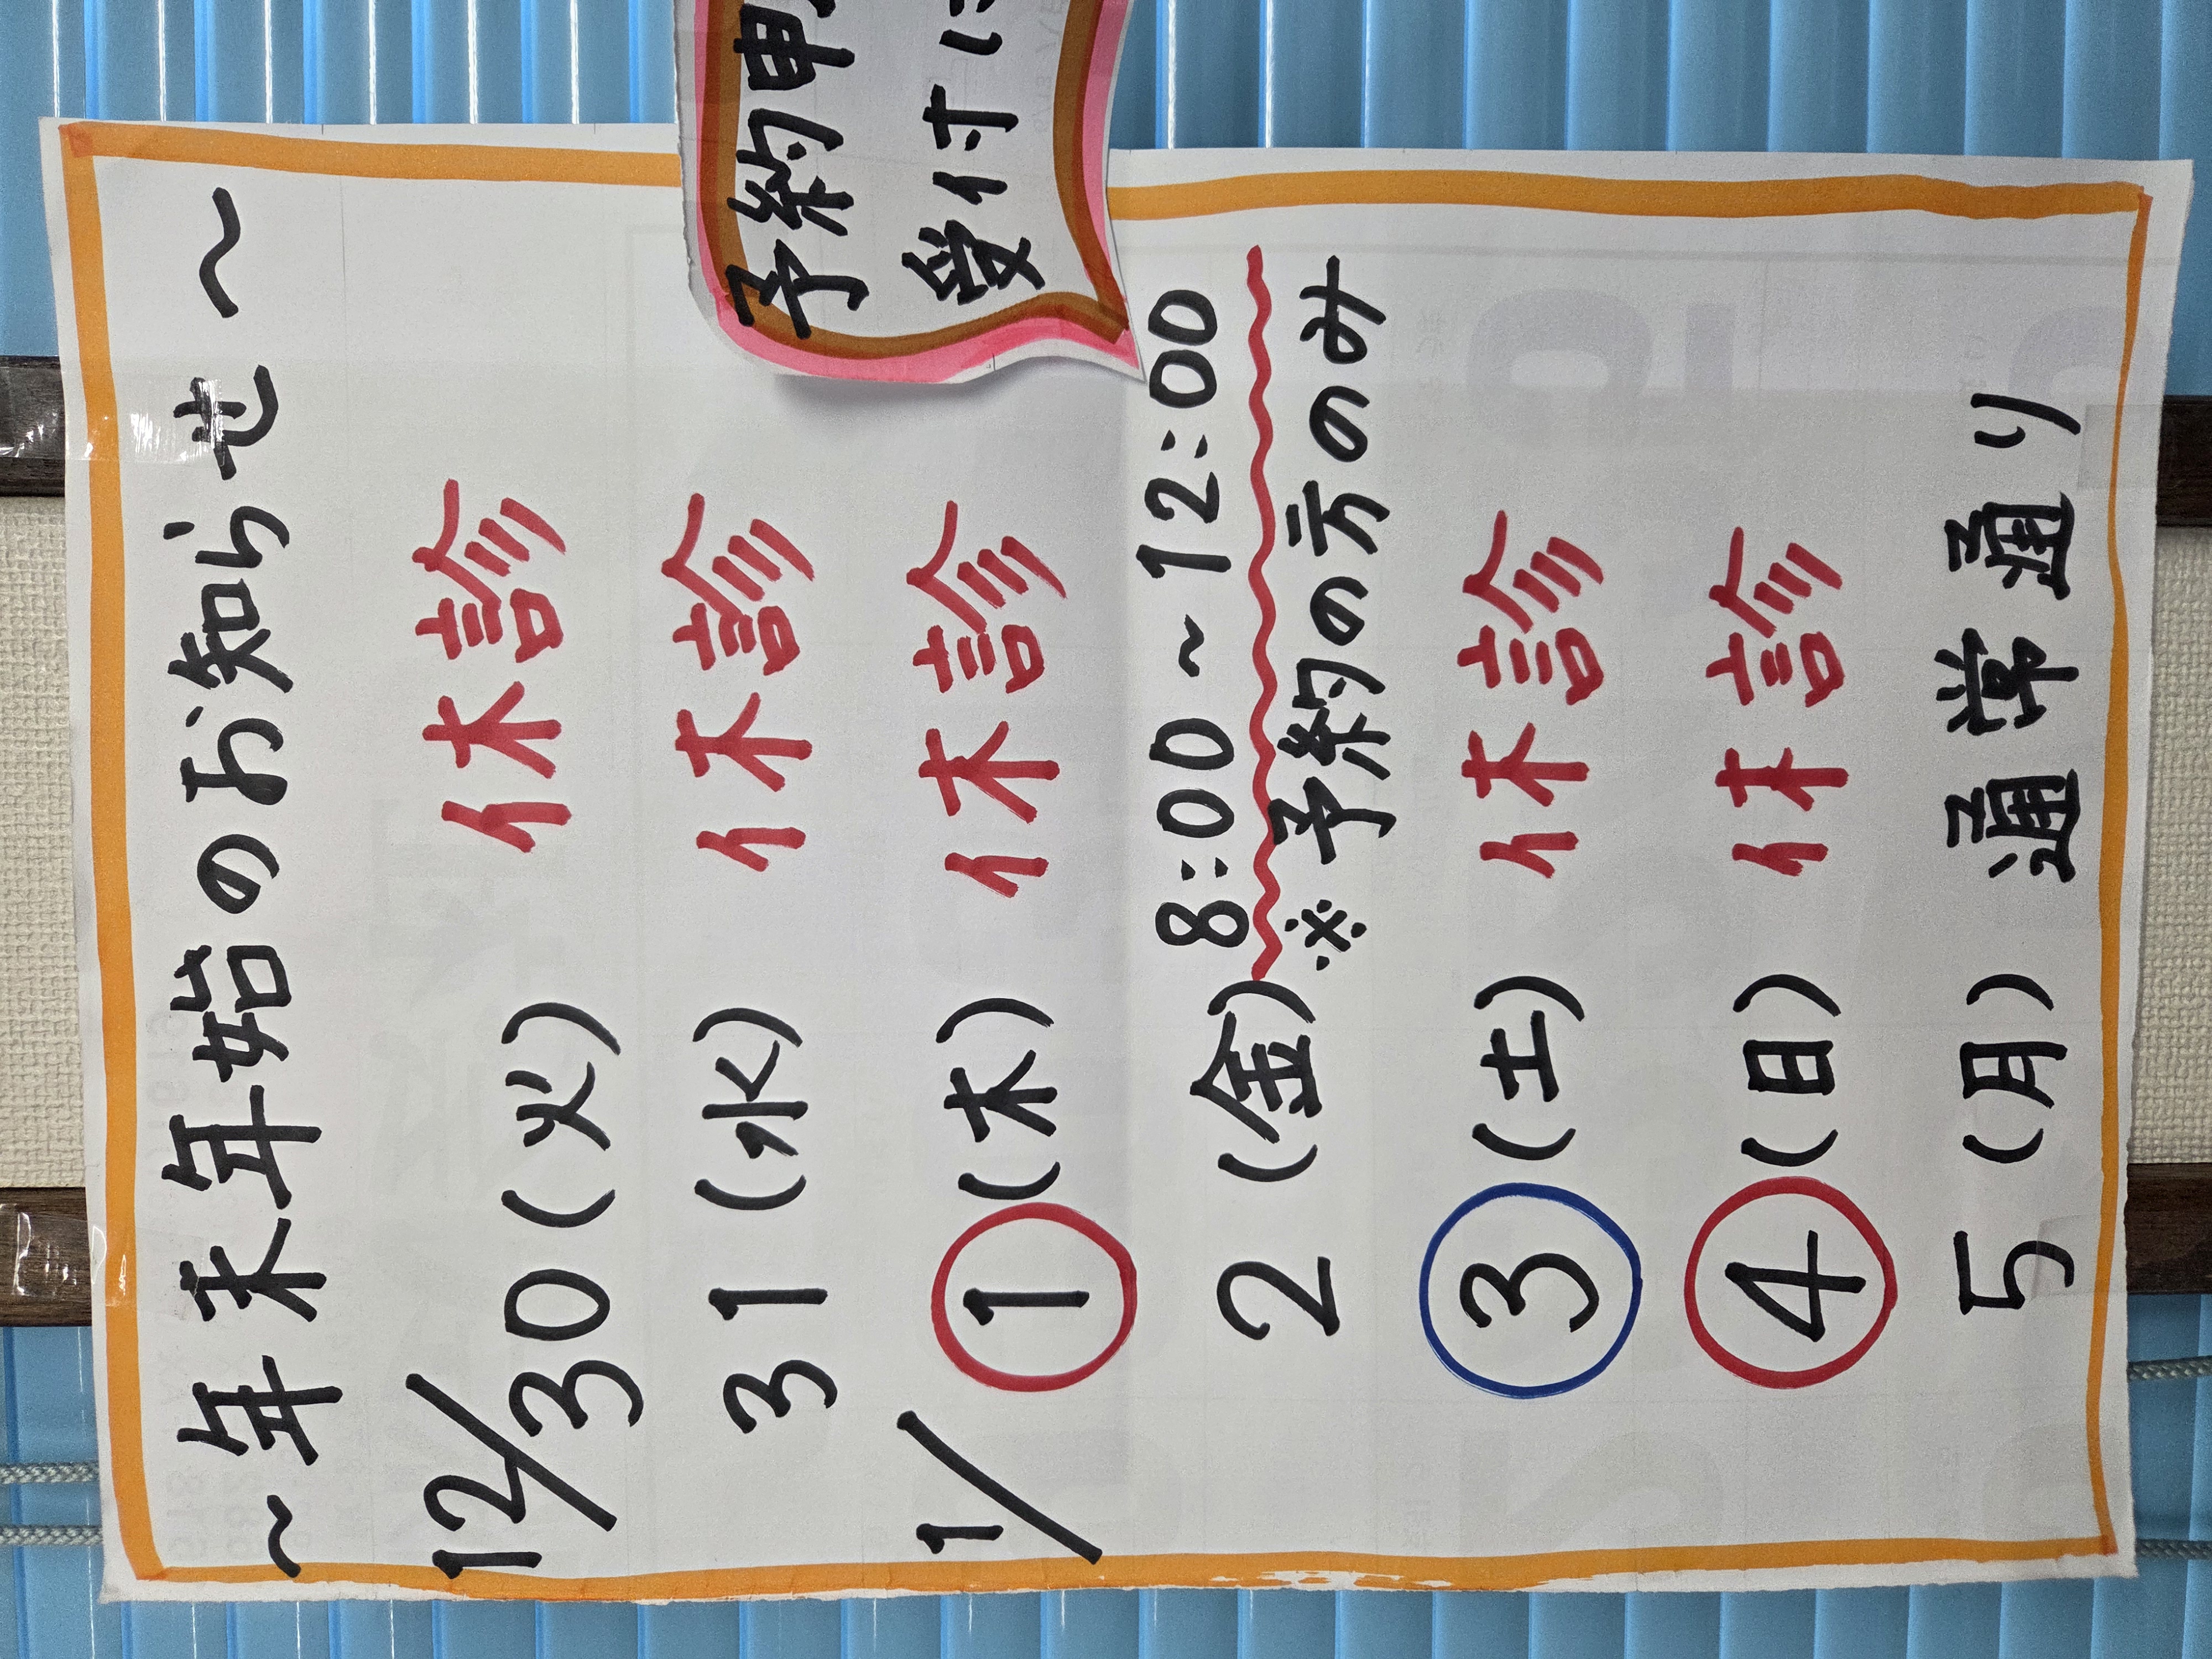 ～年末年始のお知らせ～
12/30(火) 休診
31(水) 休診
1/1(木) 休診
2(金) 8:00～12:00
※予約の方のみ
3(土) 休診
4(日) 休診
5(月) 通常通り
予約申
受付に